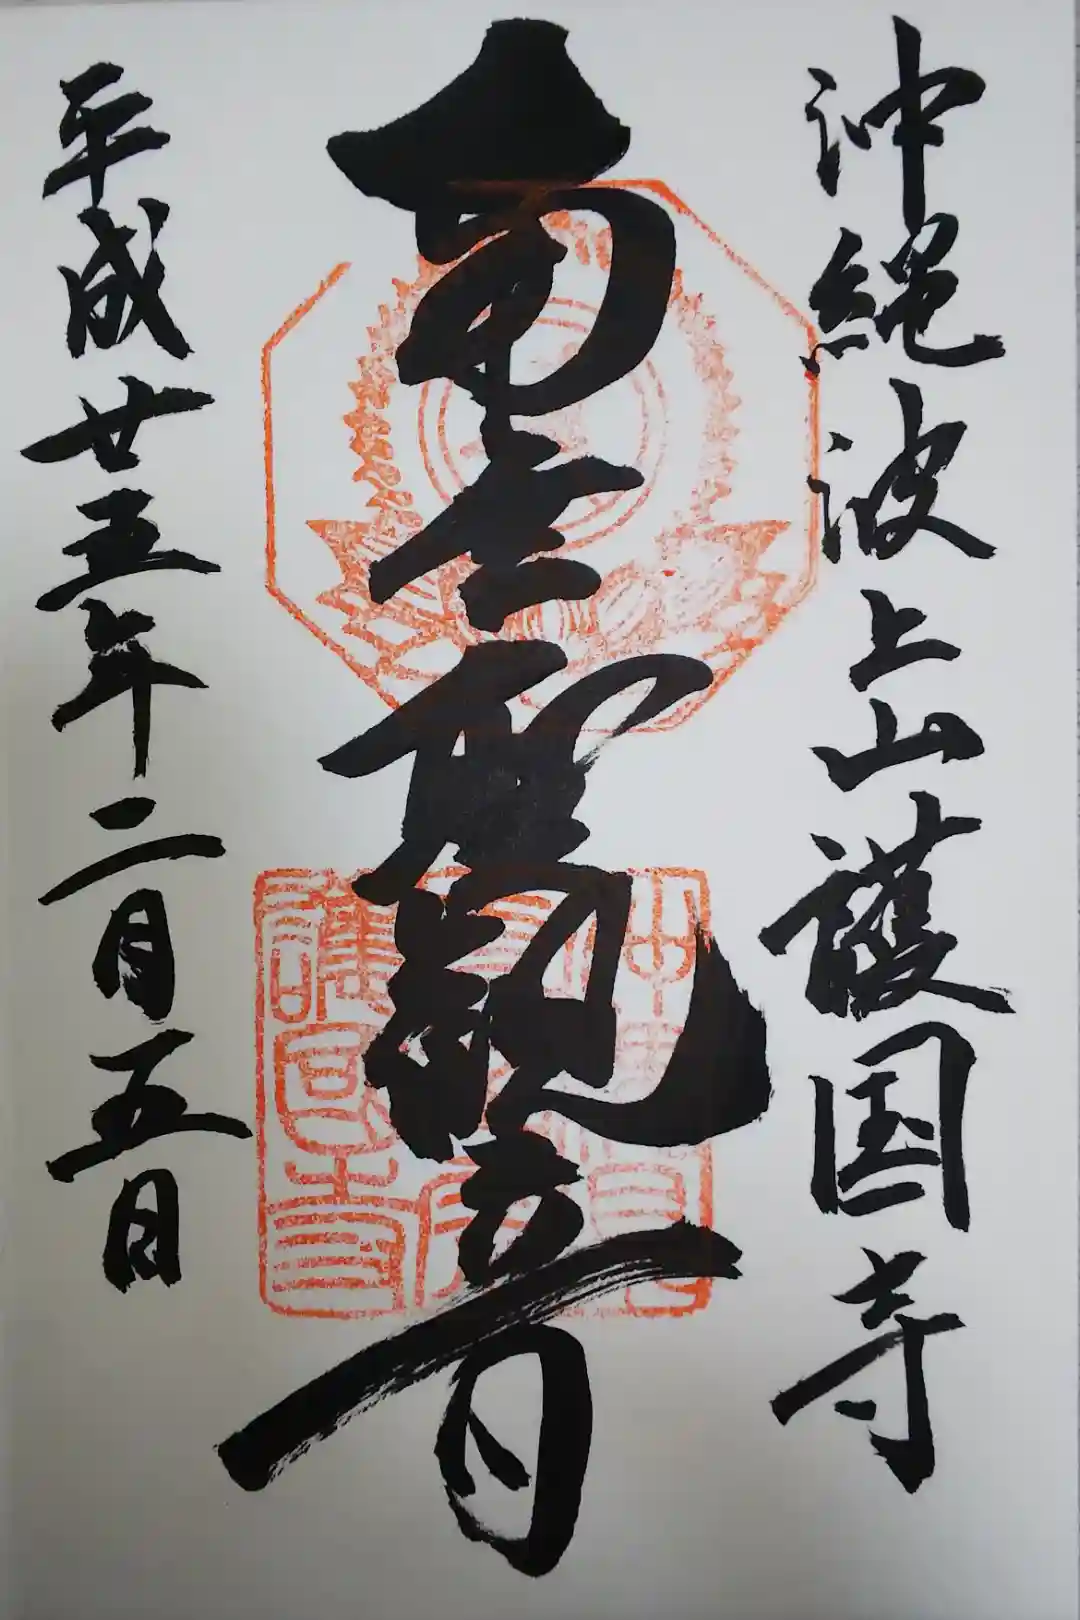 沖縄波上山護国寺
聖観音
平成廿五年二月五日